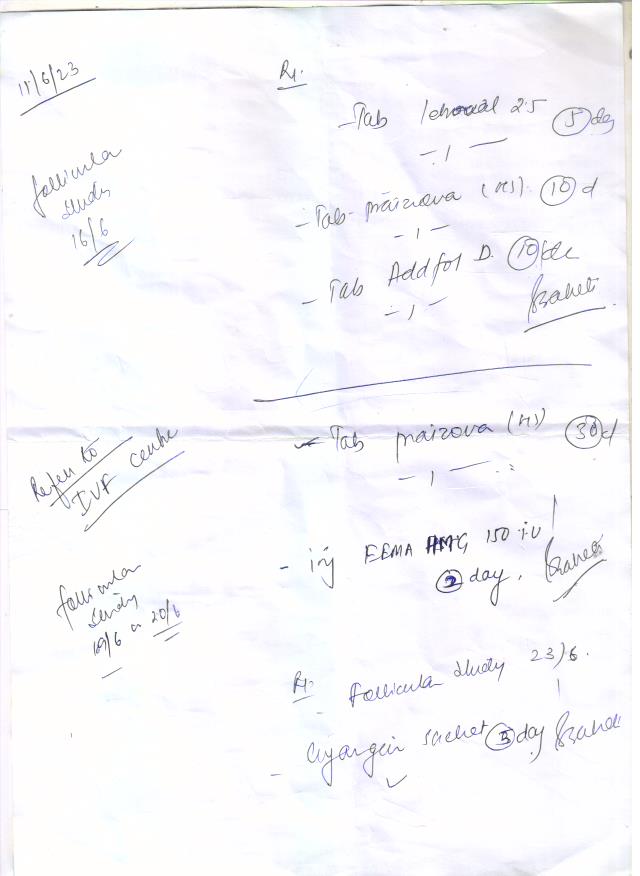 11/6/23
Rx.
- Tab 2.5 5 day
- 1 -
follicular
study
16/6
- Tab (HS) 10 d
- 1 -
- Tab Addfol D. 10 d
- 1 -
- Tab (HS) 30 d
- 1 -
Refer to
IVF centre
- inj EEMA HMG 150 i.u
2 day.
follicular
study
19/6 or 20/6
Rx. Follicular study 23/6.
- sachet 3 day